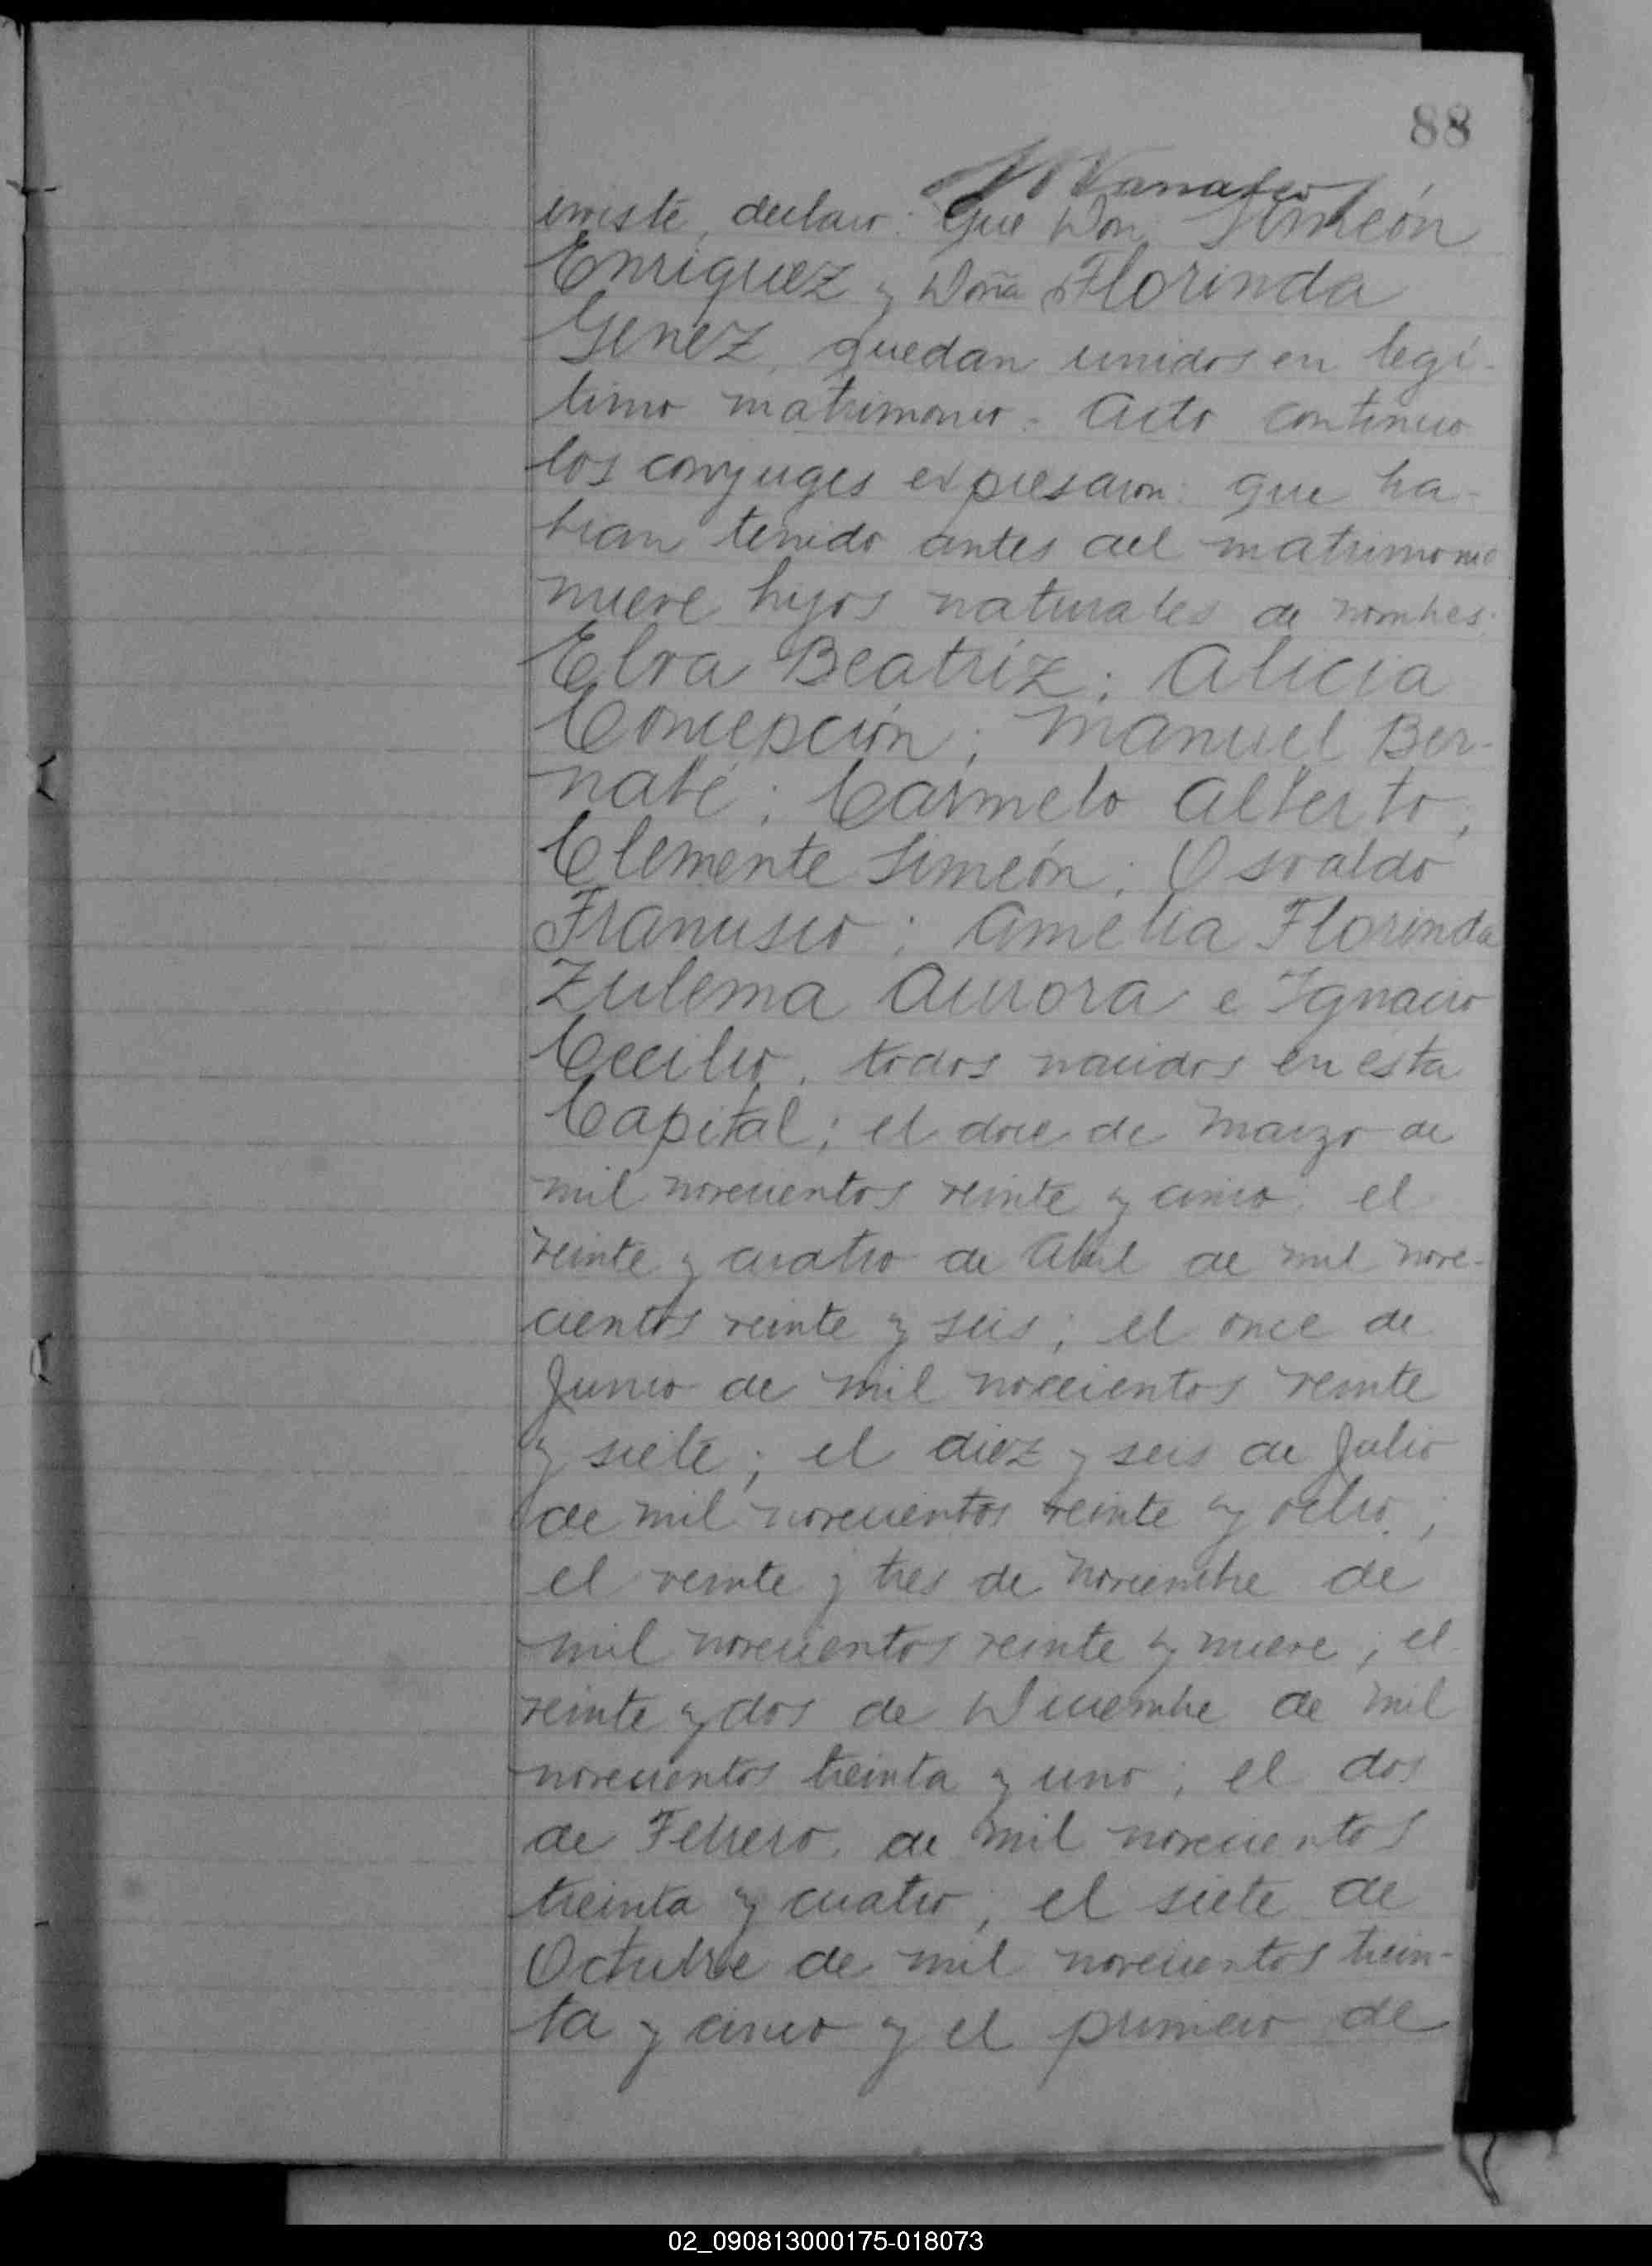 88
enviste, declaro: Que Don Simeón
Enriquez y Doña Florinda
Genez, quedan unidos en legí-
timo matrimonio. Acto continuo
los conyuges expresaron: que ha-
bian tenido antes del matrimonio
nueve hijos naturales de nombres:
Elva Beatriz; Alicia
Concepción; Manuel Ber-
nabé; Carmelo Alberto;
Clemente Simeón; Osvaldo
Francisco; Amelia Florinda
Zulema Aurora e Ignacio
Cecilio, todos nacidos en esta
Capital; el doce de Marzo de
mil novecientos veinte y cinco; el
veinte y cuatro de Abril de mil nove-
cientos veinte y seis; el once de
Junio de mil novecientos veinte
y siete; el diez y seis de Julio
de mil novecientos veinte y ocho;
el veinte y tres de Noviembre de
mil novecientos veinte y nueve; el
veinte y dos de Diciembre de mil
novecientos treinta y uno; el dos
de Febrero de mil novecientos
treinta y cuatro; el siete de
Octubre de mil novecientos trein-
ta y cinco y el primero de
02_090813000175-018073